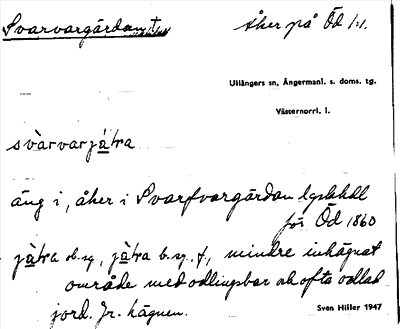 Svarvargärdan åker på Öd 1:1.
Ullångers sn, Ångermanl. s. doms. tg.
Västernorrl. l.
svarvarjäka
äng i, åker i Svarfvargärdan
för Öd 1860
jäka ob. sg., jäka b. sg. f., mindre inhägnat
område med odlingsbar ofta odlad
jord. Jr. hägnen.
Sven Hiller 1947